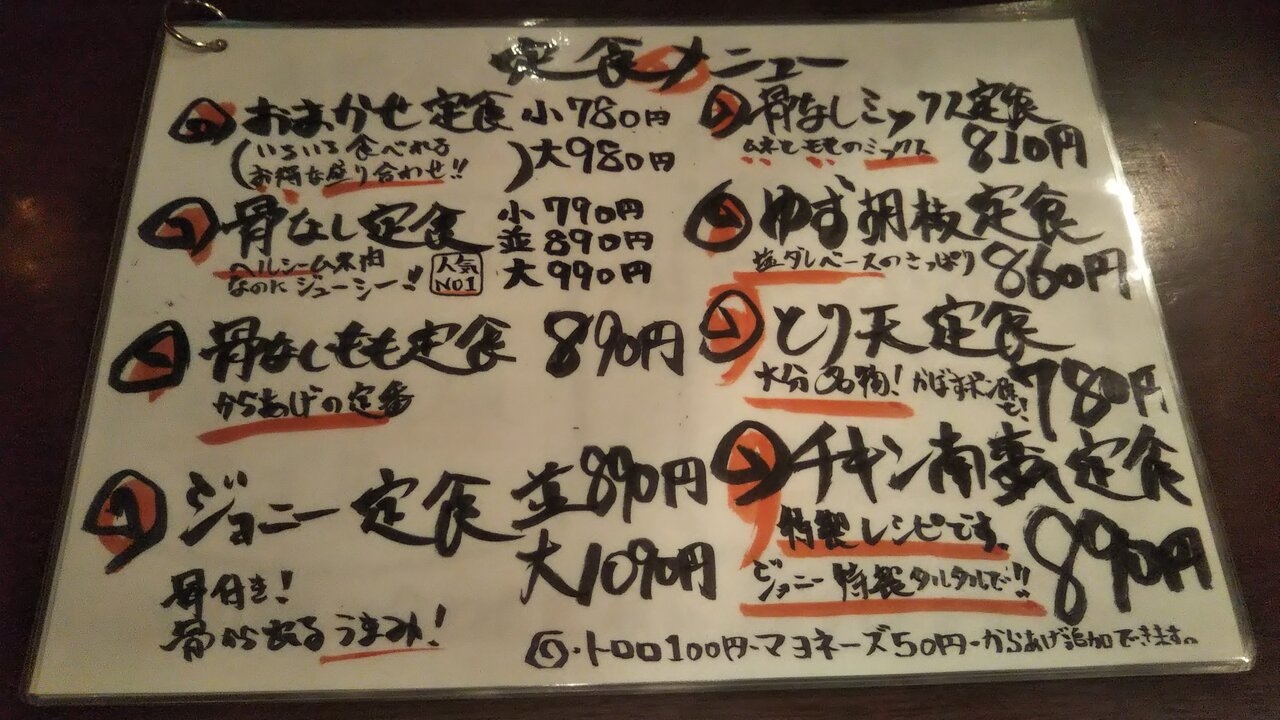 定食メニュー
おまかせ定食 小780円
(いろいろ食べれる
お得な盛り合わせ!!) 大980円
骨なし定食 小790円
並890円
大990円
ヘルシームネ肉
なのにジューシー!! 人気
NO1
骨なしもも定食 890円
からあげの定番
ジョニー定食 並890円
大1090円
骨付き!
骨から出るうまみ!
骨なしミックス定食
ムネとももの ミックス 810円
ゆず胡椒定食
塩ダレベースのさっぱり 860円
とり天定食
大分名物! かぼすポン酢で! 780円
チキン南蛮定食
特製レシピです。 890円
ジョニー特製タルタルで!!
トロロ100円・マヨネーズ50円・からあげ追加できます。